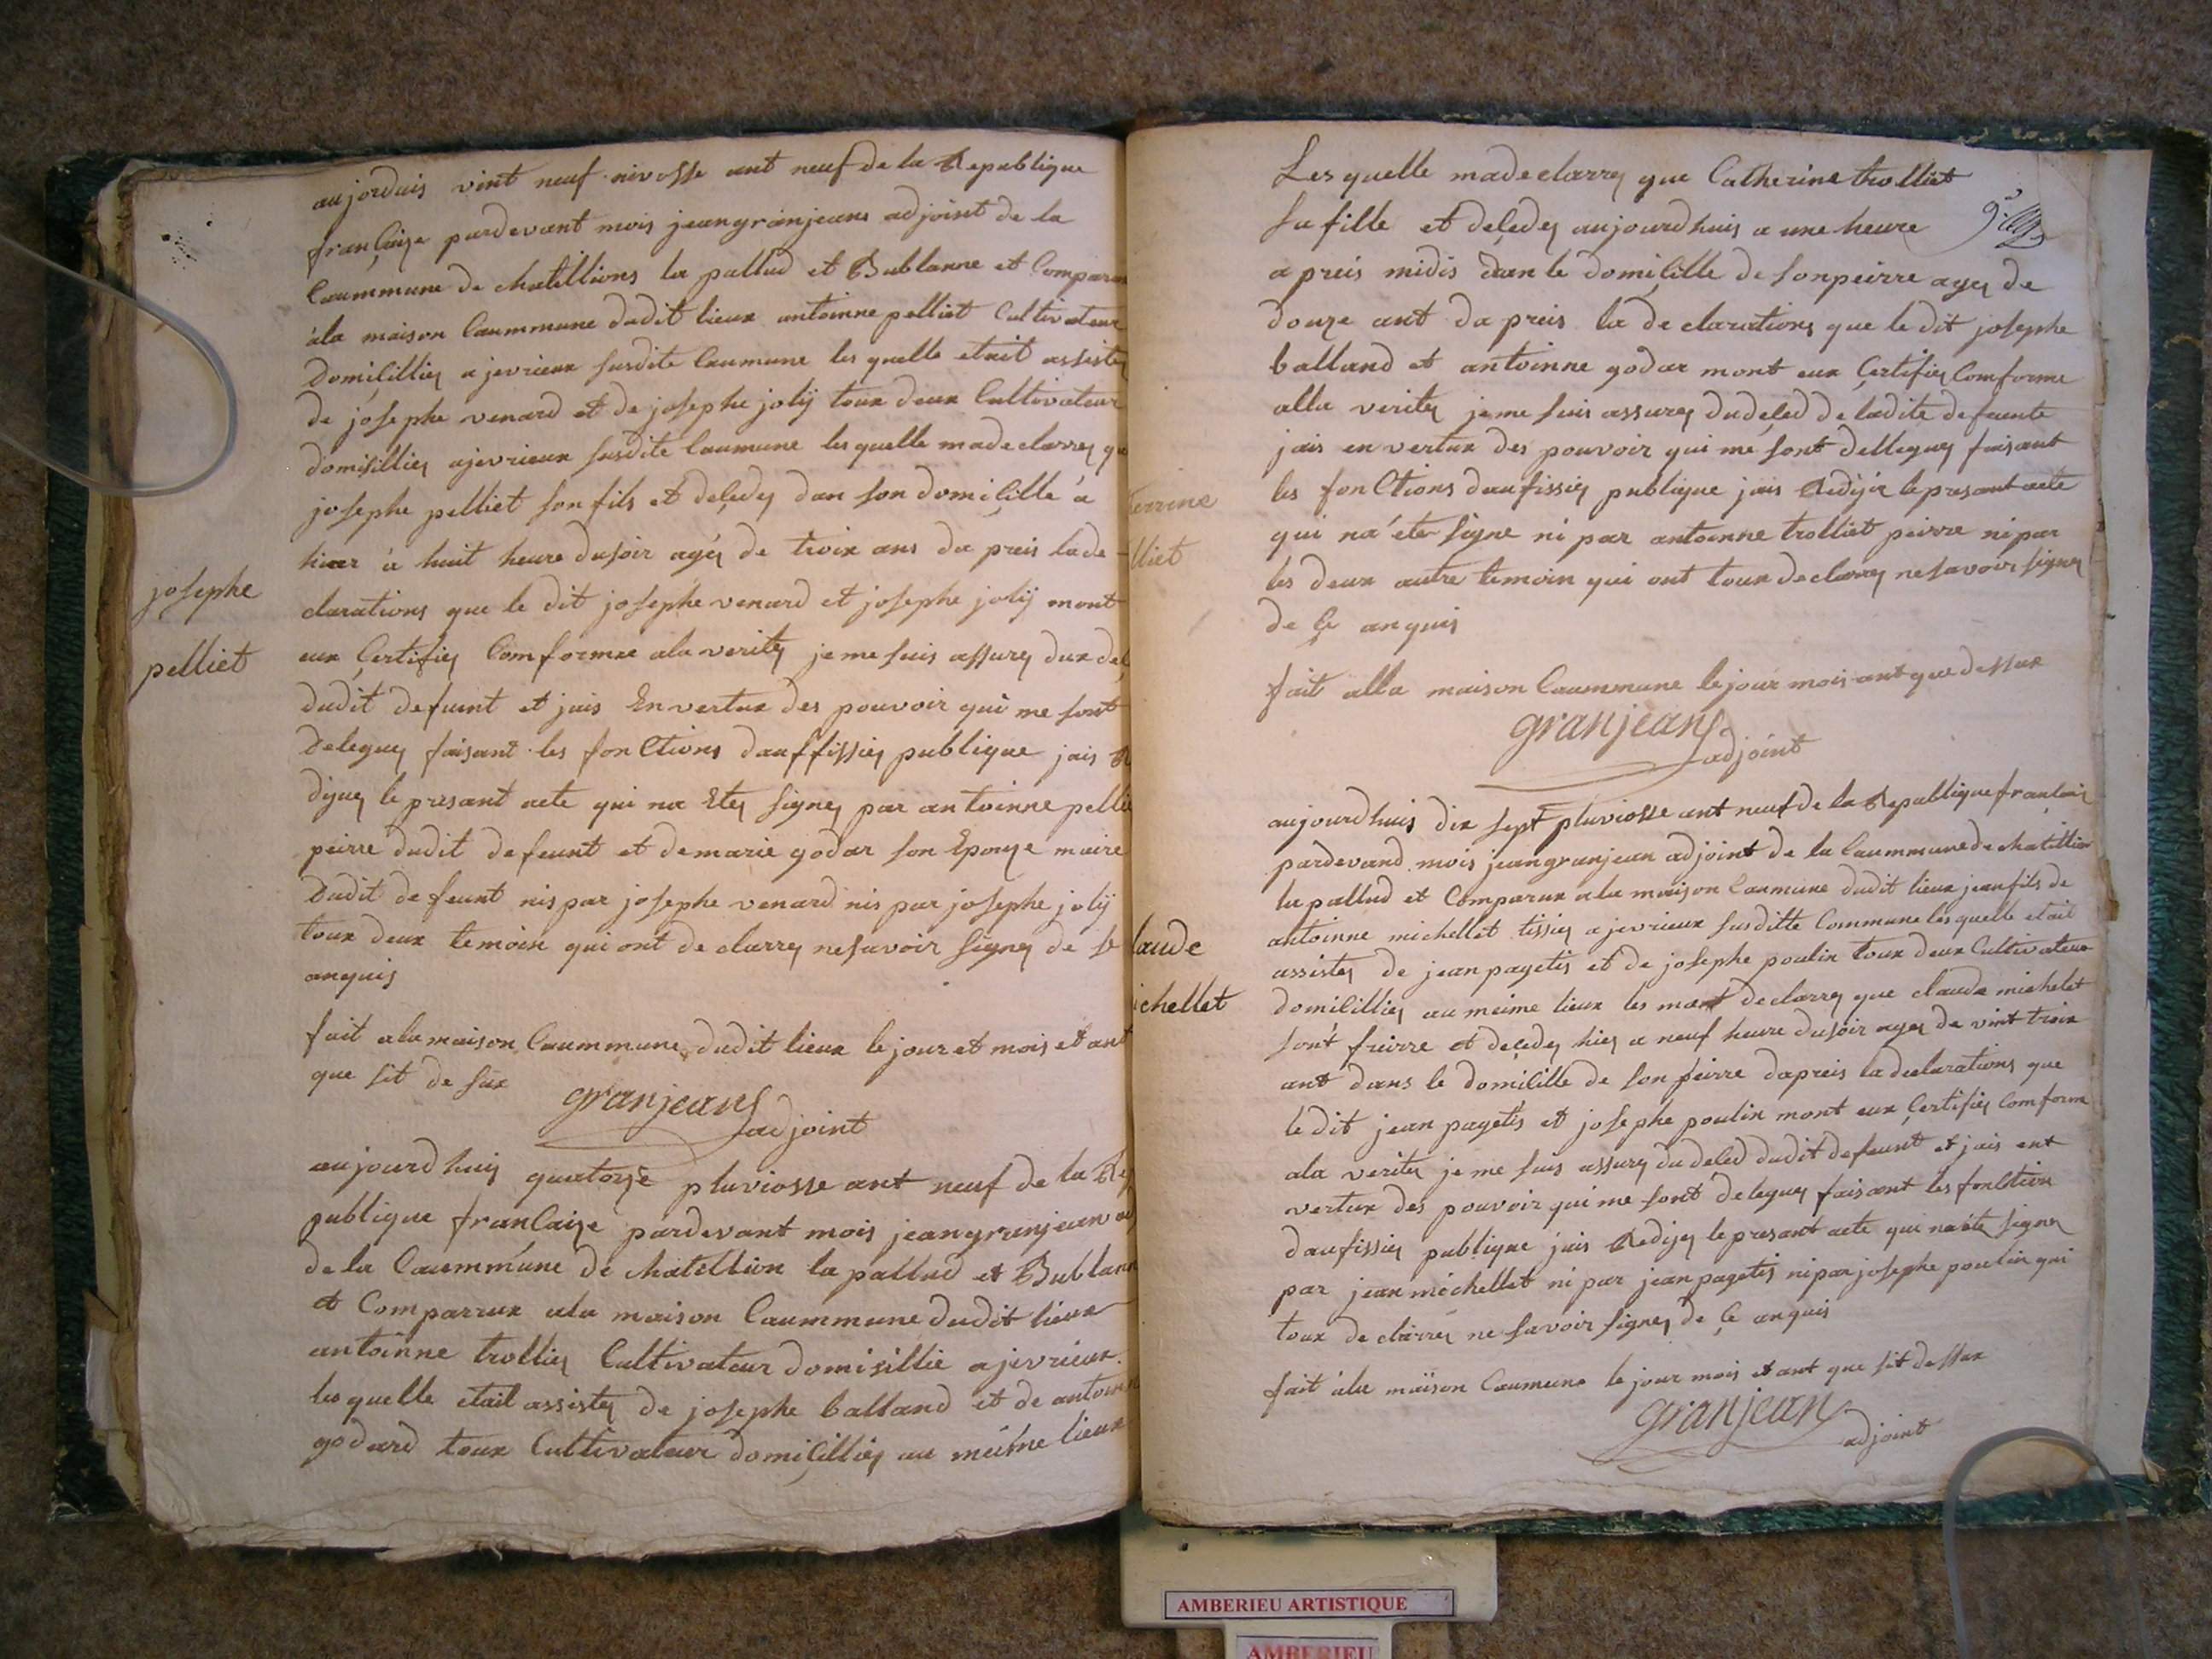 aujorduis vint neuf nivosse ant neuf de la Republique
françaize pardevant mois jean granjeans adjoint de la
Caummune de chatellions la pallud et Bublanne et Comparu
à la maison Caummune dudit lieux antoinne pelliet Cultivateur
Domiçilliey a jevrieux susdite Caumune les quelle etait assistey
de josephe venard et de josephe jolij toux deux Cultivateur
domisilliey a jevrieux susdite Caumune les quelle ma declarrey que
josephe pelliet son fils et deçedey dan son domiçille à
hier à huit heure dusoir agés de troix ans da preis la de
josephe
clarations que le dit josephe venard et josephe jolij mont
pelliet
eux Çertifiey Comformee ala veritey je me suis assurey dux deç
dudit defuent et jais En vertux des pouvoir qui me sont
Deleguey faisant les fonCtions dauffissiey publique jais R
digey le presant acte qui na Etey signey par antoinne pellie
peirre dudit defeunt et de marie godar son Epouze maire
Dudit defeunt nis par josephe venard nis par josephe jolij
toux deux temoin qui ont declarrey nesavoir signey de se
anquis
fait ala maison Caummune dudit lieux le jour et mois et ant
que sit de sux
granjeans
adjoint
aujourdhuis quatorze pluviosse ant neuf de la Re
publique franCaize pardevant mois jean granjean ad
de la Caummune de chatellion la pallud et Bublann
et Comparrux ala maison Caummune dudit lieux
antoinne trolliey Cultivateur domisillie a jevrieux
les quelle etait assistey de josephe balland et de antoinn
godard toux Cultivateur domiçilliey au meime lieux
Les quelle ma declarrey que Catherine trolliet
sa fille et deçedey aujourdhuis a une heure
apreis midis dan le domiçille de son peirre agey de
douze ant da preis la declarations que le dit josephe
balland et antoinne godar mont eux Çertifiey Comforme
alla veritey je me suis assurey du deçed de ladite defuente
jais en vertux des pouvoir qui me sont delleguey faisant
les fonCtions daufissiey publique jais Redijér le presant acte
terrine
qui na ete signe ni par antoinne trolliet peirre ni par
lliet
les deux autre temoin qui ont toux declarrey ne savoir signey
de Çe anquis
fait alla maison Caummune le jour mois ant que dessux
granjeans
adjoint
aujourdhuis dix sept pluviosse ant neuf de la Republique française
pardevand mois jean granjean adjoint de la Caummune de chatillion
la pallud et Comparux ala maison Caumune dudit lieux jean fils de
antoinne michellet tissiey a jevrieux susditte Commune les quelle etait
laude
assistey de jean pagetis et de josephe poulin toux deux Cultivateur
ichellet
domiÇilliey au meime lieux les mont declarrey que claude michelet
sont freirre et deçedey hiey a neuf heure dusoir agey de vint troix
ant dans le domiÇille de son peirre dapreis la declarations que
le dit jean pagetis et josephe poulin mont eux Çertifiey Comforme
ala veritey je me suis assurey du deÇed dudit defeunt et jais ent
vertux des pouvoir qui me sont deleguey faisant les fonCtion
daufissiey publique jais Redigey le presant acte qui na été signey
par jean michellet ni par jean pagetis ni par josephe poulin qui
toux declarrey ne savoir signey de Çe anquis
fait àla maison Caumune le jour mois et ant que sit dessux
granjean
adjoint
AMBERIEU ARTISTIQUE
AMBERIEU